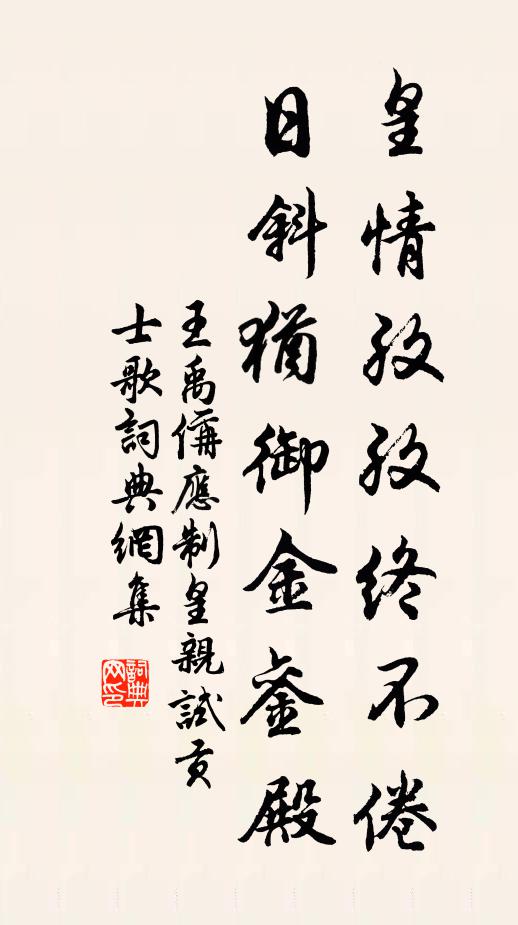 皇情孜孜終不倦
日斜猶御金鑾殿
王禹偁應制皇親試貢
士歌詞典網集
詞典網印